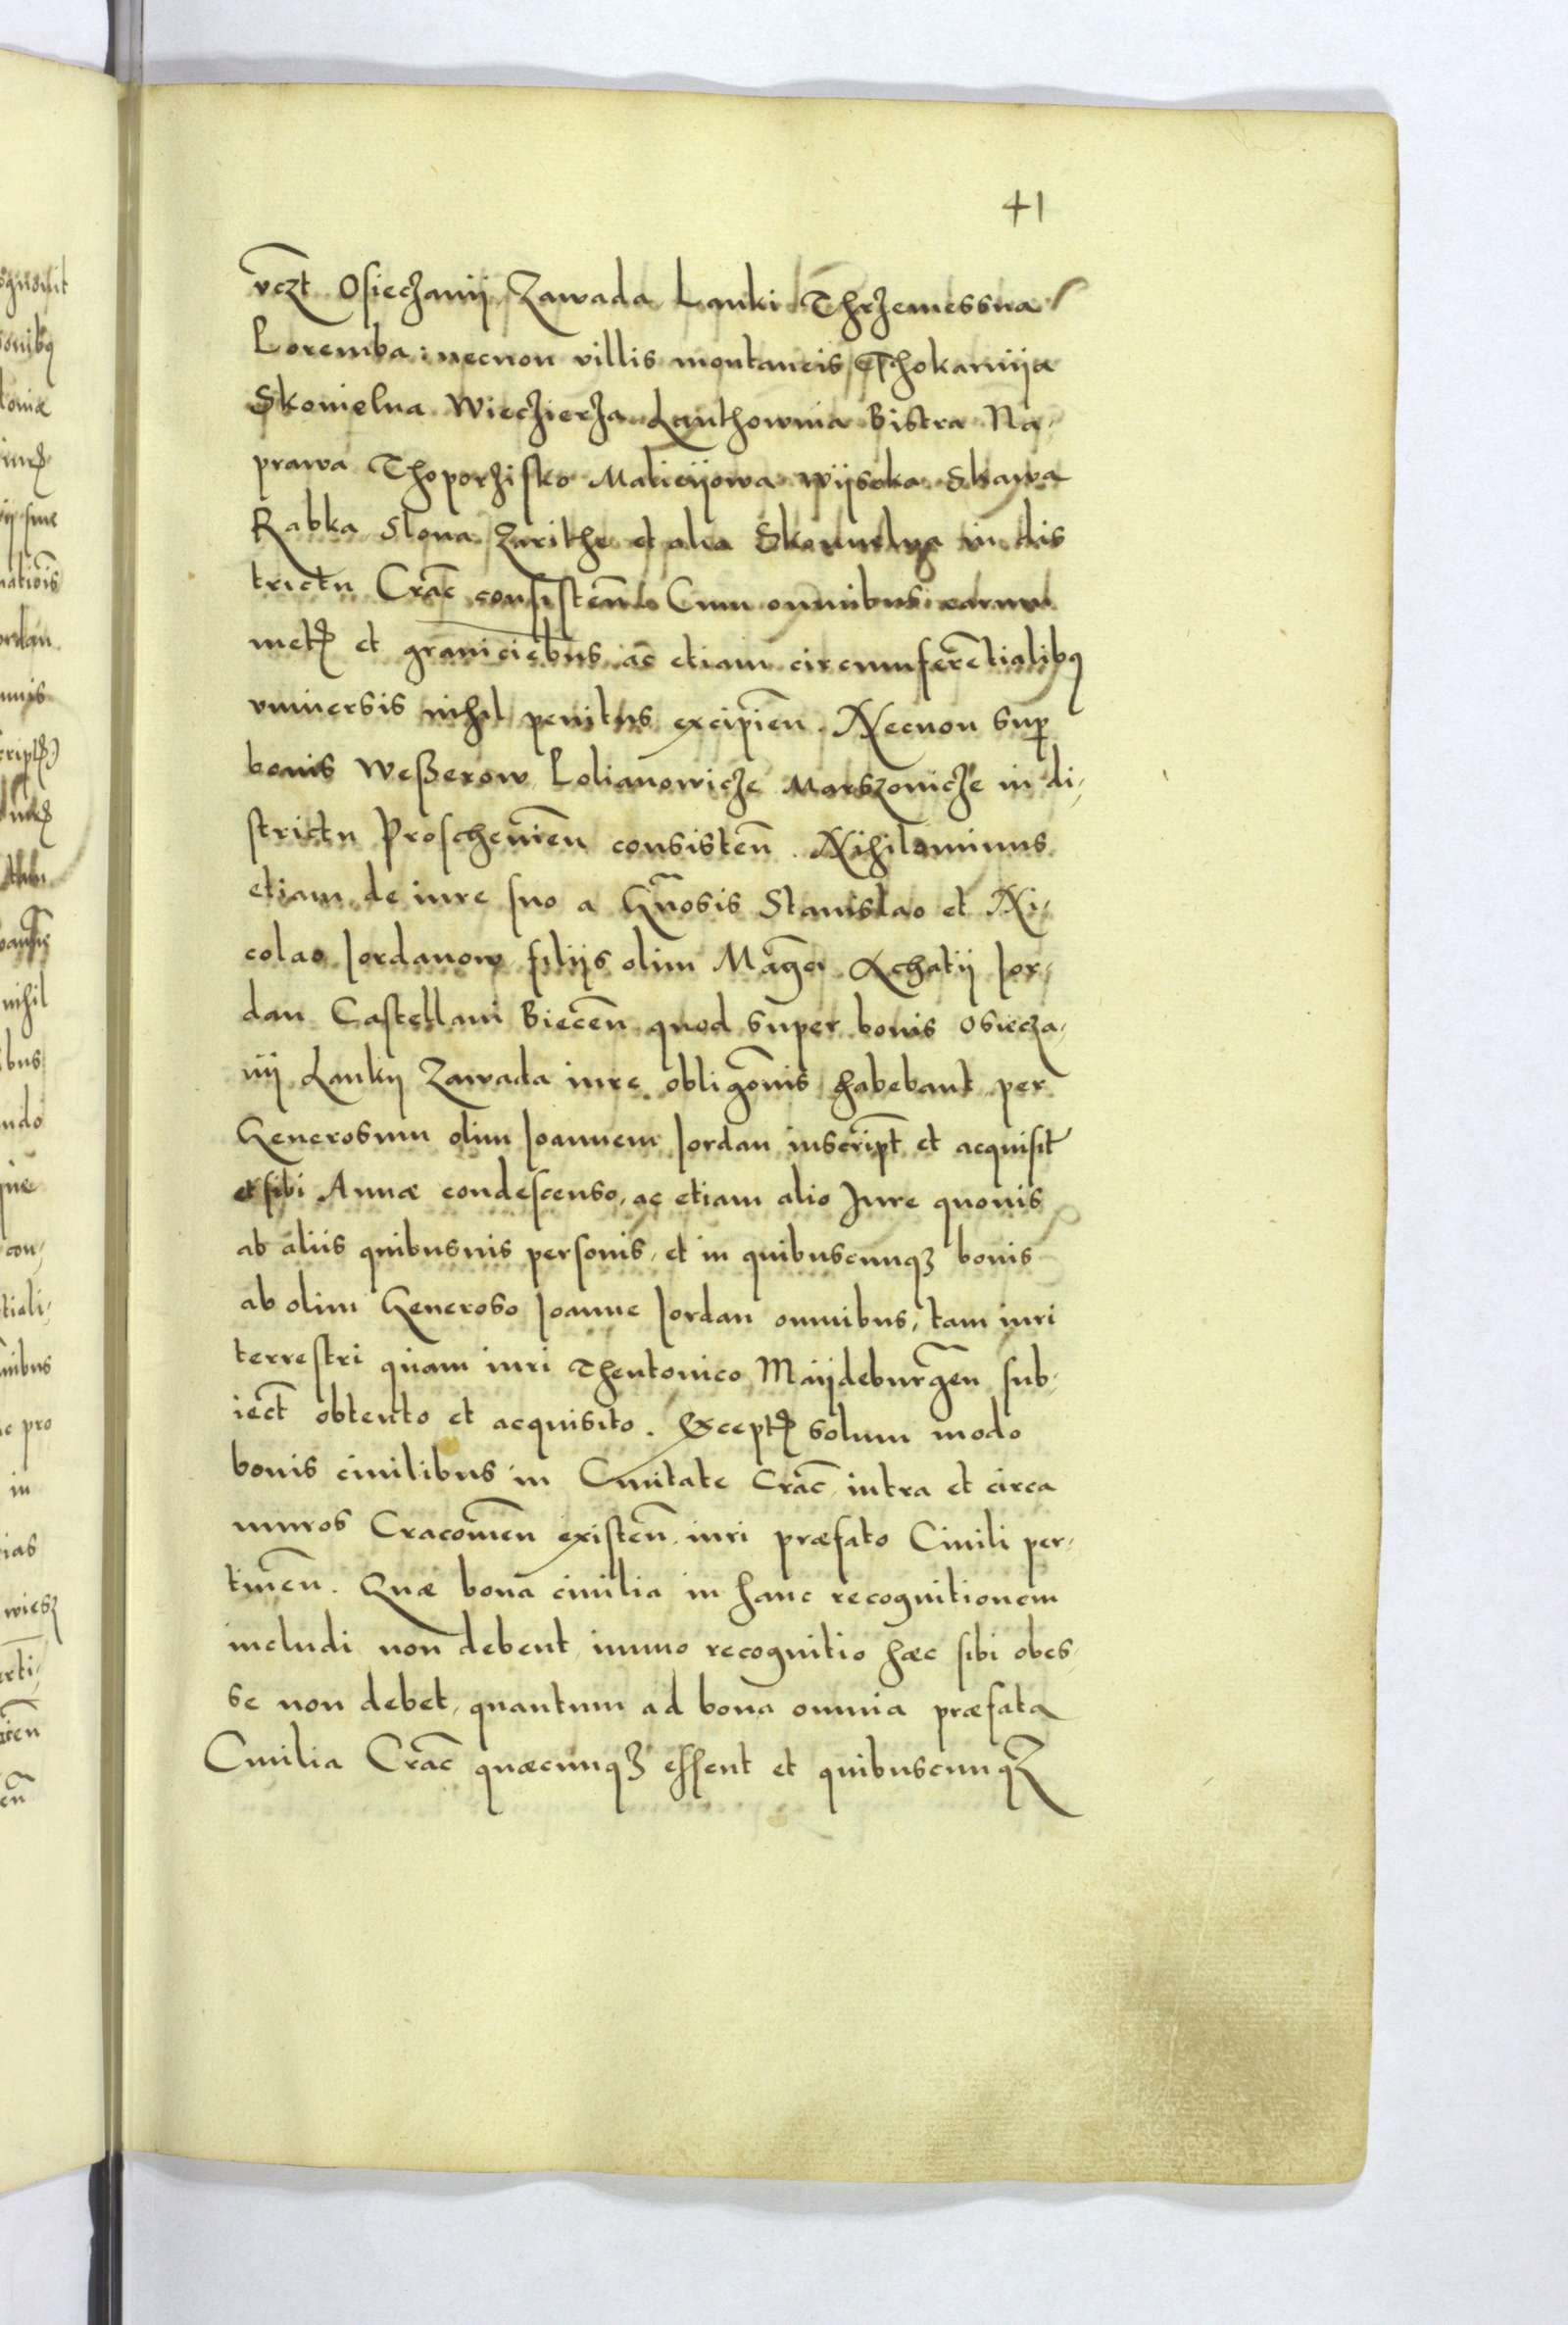 41
vczt Osieczanij Zawada Lanki Thrzemessna
Loremba: necnon villis montaneis Thokarnija
Skomielna Wieczierza Lanthownia Bistra Na,
prawa Thoporzisko Malieijowa wijsoka Skawa
Rabka Slona Zarithe et alia Skomielna in dis
trictu Crac̄ consisteñ Cum omnibus earum
metꝭ et graniciebus ac etiam circumfereñtialibꝯ
vniuersis nihil penitus excipieñ. Necnon suꝑ
bonis Weßerow Lolianowicze Marszowicze in di,
strictu Proschouieñ consisteñ. Nihilominus
etiam de iure suo a Gñosis Stanislao et Ni,
colao Jordanow filijs olim Magci Achatij Jor,
dan Castellani Bieceñ quod super bonis Osiecza,
nij Lankij Zawada iure obligōnis habebant per
Generosum olim Joannem Jordan inscript̄ et acquisit̄
et sibi Annæ condescenso, ac etiam alio Jure quouis
ab aliis quibusuis personis, et in quibuscunqꝫ bonis
ab olim Generoso Joanne Jordan omnibus, tam iuri
terrestri quam iuri Theutonico Maijdeburgeñ sub,
iect̄ obtento et acquisito. Exceptꝭ solum modo
bonis ciuilibus in Ciuitate Crac̄ intra et circa
muros Cracouieñ existeñ iuri præfato Ciuili per,
tineñ. Quæ bona ciuilia in hanc recognitionem
includi non debent, immo recognitio hæc sibi obes,
se non debet, quantum ad bona omnia præfata
Ciuilia Crac̄ quæcunqꝫ essent et quibuscunqꝫ